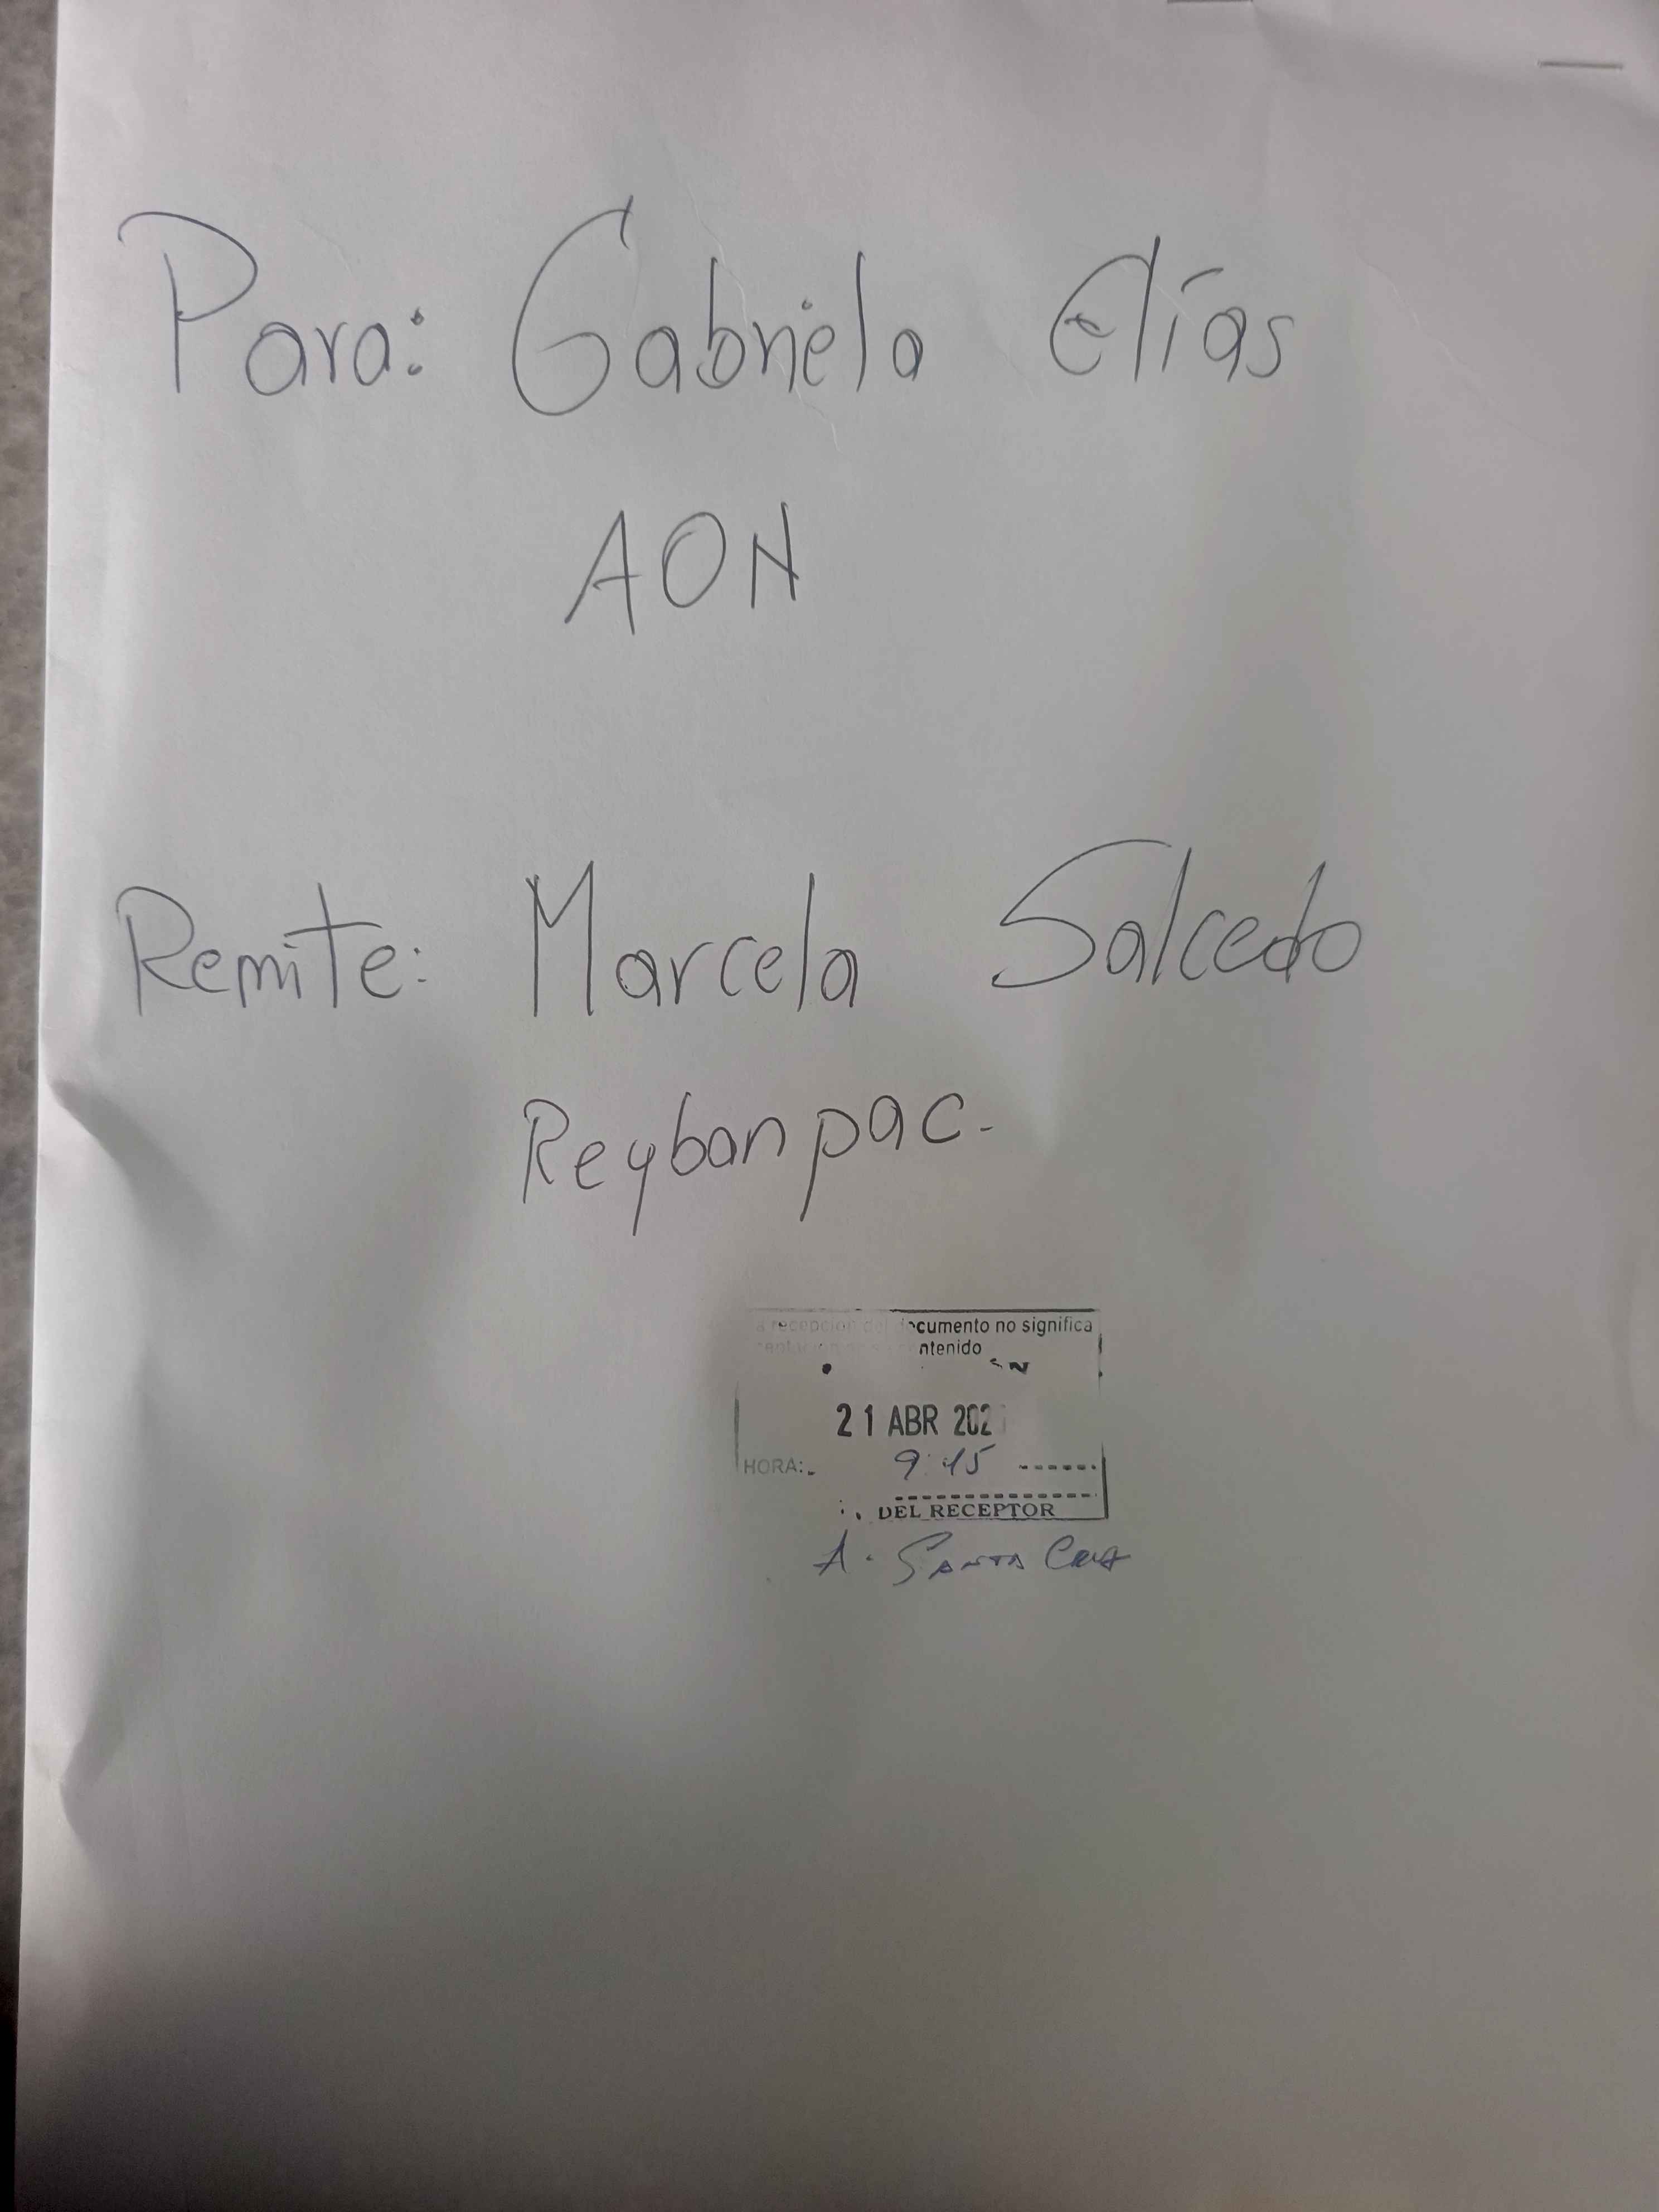 Para: Gabriela Elías
AON
Remite: Marcela Salcedo
Reybanpac.
a recepcion del documento no significa
ntenido
21 ABR 202
HORA: 9:45
DEL RECEPTOR
A. Santa Cruz